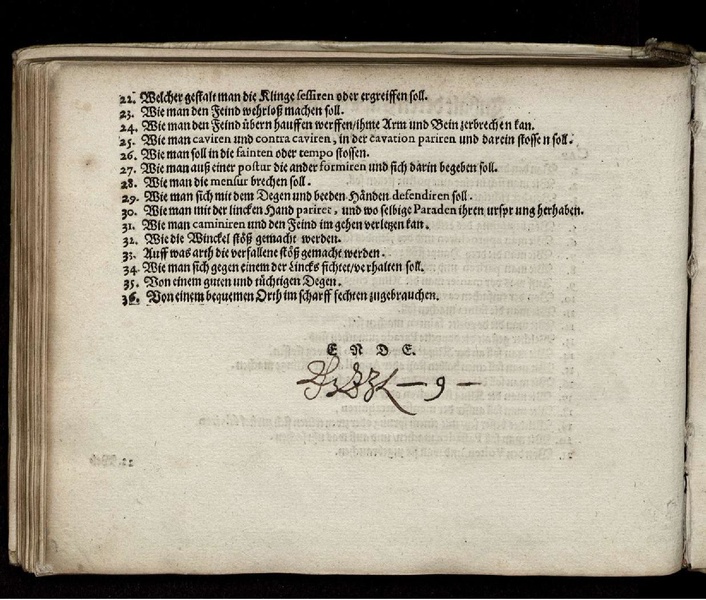 22. Welcher gestalt man die Klinge sessiren oder ergreiffen soll.
23. Wie man den Feind wehrloß machen soll.
24. Wie man den Feind übern hauffen werffen/ihme Arm und Bein zerbrechen kan.
25. Wie man caviren und contra caviren, in der cavation pariren und darein stossen soll.
26. Wie man soll in die fainten oder tempo stossen.
27. Wie man auß einer postur die ander formiren und sich darin begeben soll.
28. Wie man die mensur brechen soll.
29. Wie man sich mit dem Degen und beeden Händen defendiren soll.
30. Wie man mit der lincken Hand pariret, und wo selbige Paraden ihren ursprung herhaben.
31. Wie man caminiren und den Feind im gehen verletzen kan.
32. Wie die Winckel stöß gemacht werden.
33. Auff was arth die verfallene stöß gemacht werden.
34. Wie man sich gegen einem der Lincks fichtet/verhalten soll.
35. Von einem guten und tüchtigen Degen.
36. Von einem bequemen Orth im scharff fechten zugebrauchen.
ENDE.
— 9 —